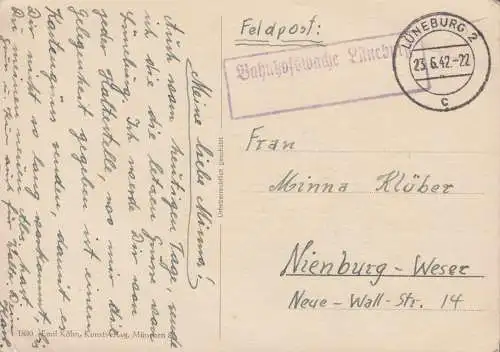 Meine liebe Minna!
Auch vom heutigen Tage, sende
ich dir die letzten Grüsse von
Lüneburg. Ich werde Dir von
jeder Haltestelle, wo mir die
Gelegenheit gegeben ist einen
Kartengruss senden, damit es
Dir nicht so lang vorkommt,
Dir meinen
Feldpost:
Bahnhofswache Lüneburg
LÜNEBURG 2
23.6.42.-22
c
Frau
Minna Klüber
Nienburg-Weser
Neue-Wall-Str. 14
Emil Köhn, Kunstverlag, München